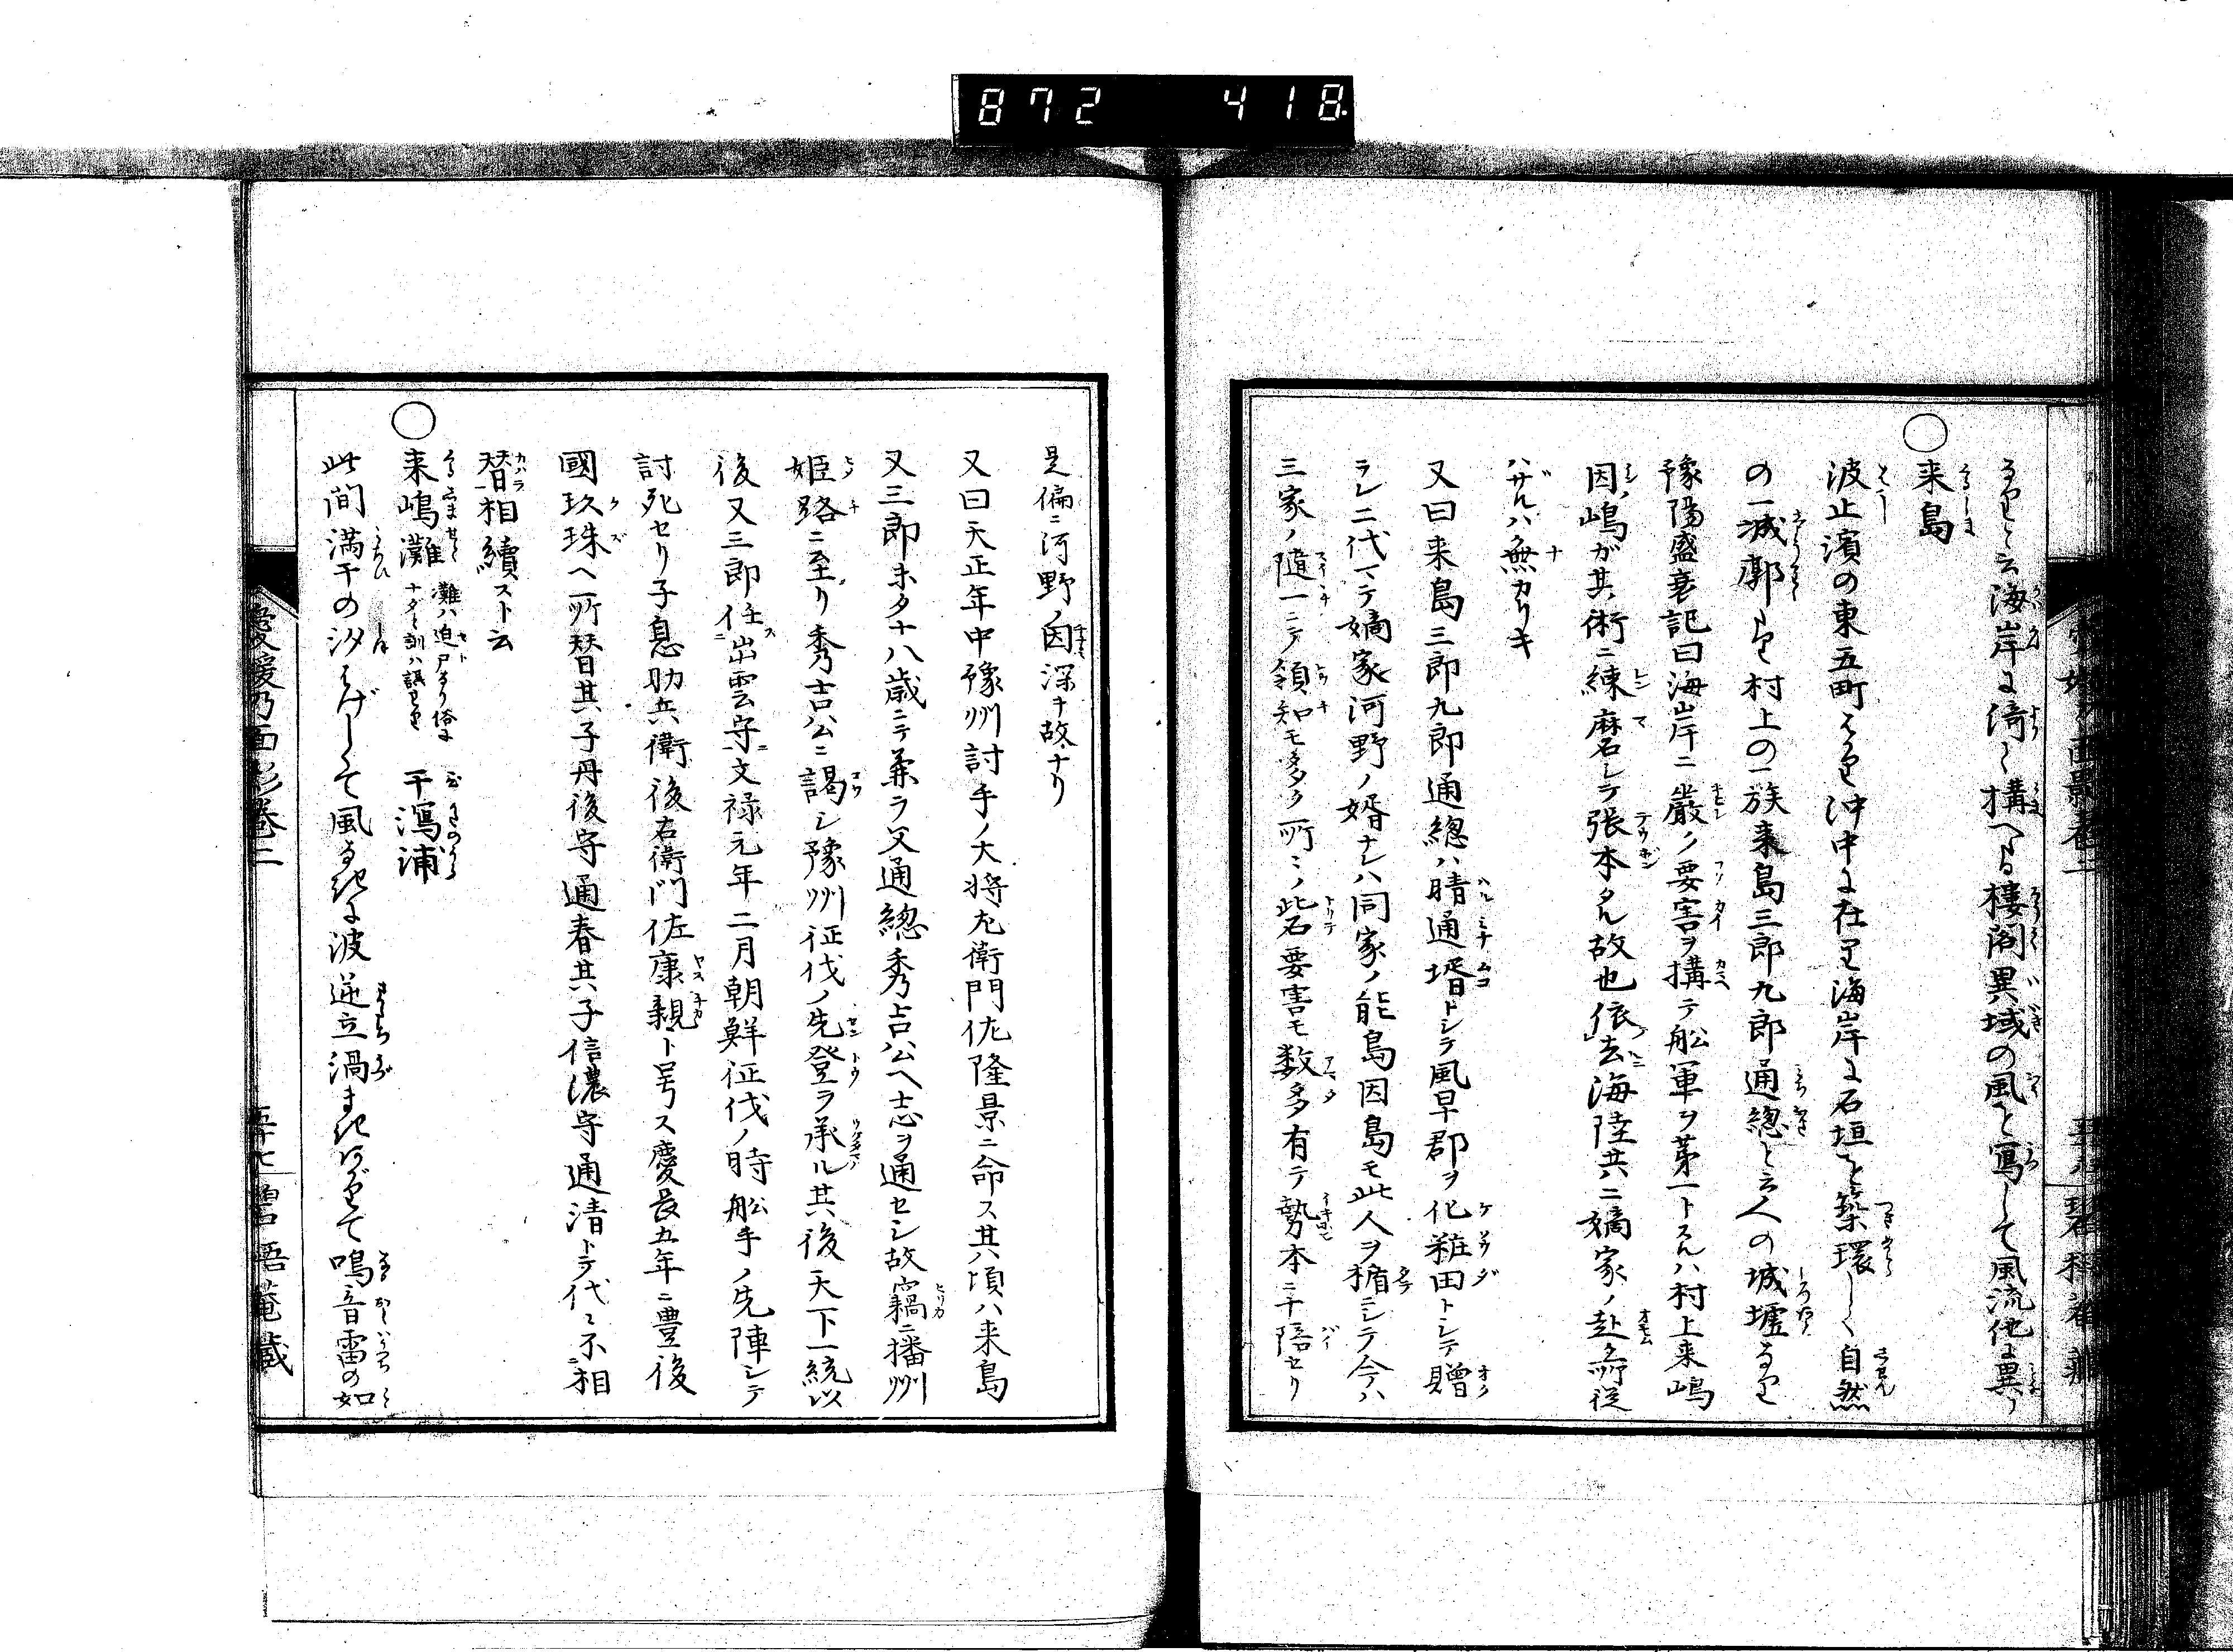 872 418
なりと云海岸に倚り構へたる樓閣異域の風を寫して風流他に異り
○来島
波止濱の東五町はかり沖中に在り海岸に石垣を築環らし自然
の一城廓にして村上の一族来島三郎九郎通總と云人の城墟なり
豫陽盛衰記曰海岸ニ巌ノ要害ヲ搆テ舩軍ヲ苐一トスルハ村上来嶋
因嶋ガ其術ニ練磨シテ張本タル故也依去海陸共ニ嫡家ノ赴ク所従
ハザルハ無カリキ
又曰来島三郎九郎通總ハ晴通壻トシテ風早郡ヲ化粧田トシテ贈
ラレ二代マテ嫡家河野ノ婿ナレハ同家ノ能島因島モ此人ヲ楯ニシテ今ハ
三家ノ随一ニテ領知モ多ク所ミノ砦要害モ数多有テ勢本ニ十陪セリ
是偏ニ河野ノ因深キ故ナリ
又曰天正年中豫州討手ノ大将左衛門佐隆景ニ命ス其頃ハ来島
又三郎未タ十八歳ニテ兼ラ父通總秀吉公ヘ志ヲ通セシ故竊ニ播州
姫路ニ至リ秀吉公ニ謁シ豫州征伐ノ先登ヲ承ル其後天下一統以
後又三郎任出雲守文禄元年二月朝鮮征伐ノ時舩手ノ先陣シテ
討死セリ子息助兵衛後右衛門佐康親ト号ス慶長五年ニ豊後
國玖珠ヘ所替其子丹後守通春其子信濃守通清トテ代々不相
替相續スト云
○来嶋灘 灘ハ迫門なり俗にナダと訓ハ誤なり 干潟浦
此间満干の汐はげしくて風なきに波逆立渦まきあがりて鳴音雷の如
愛媛乃面影巻二 五十七 碧梧菴藏